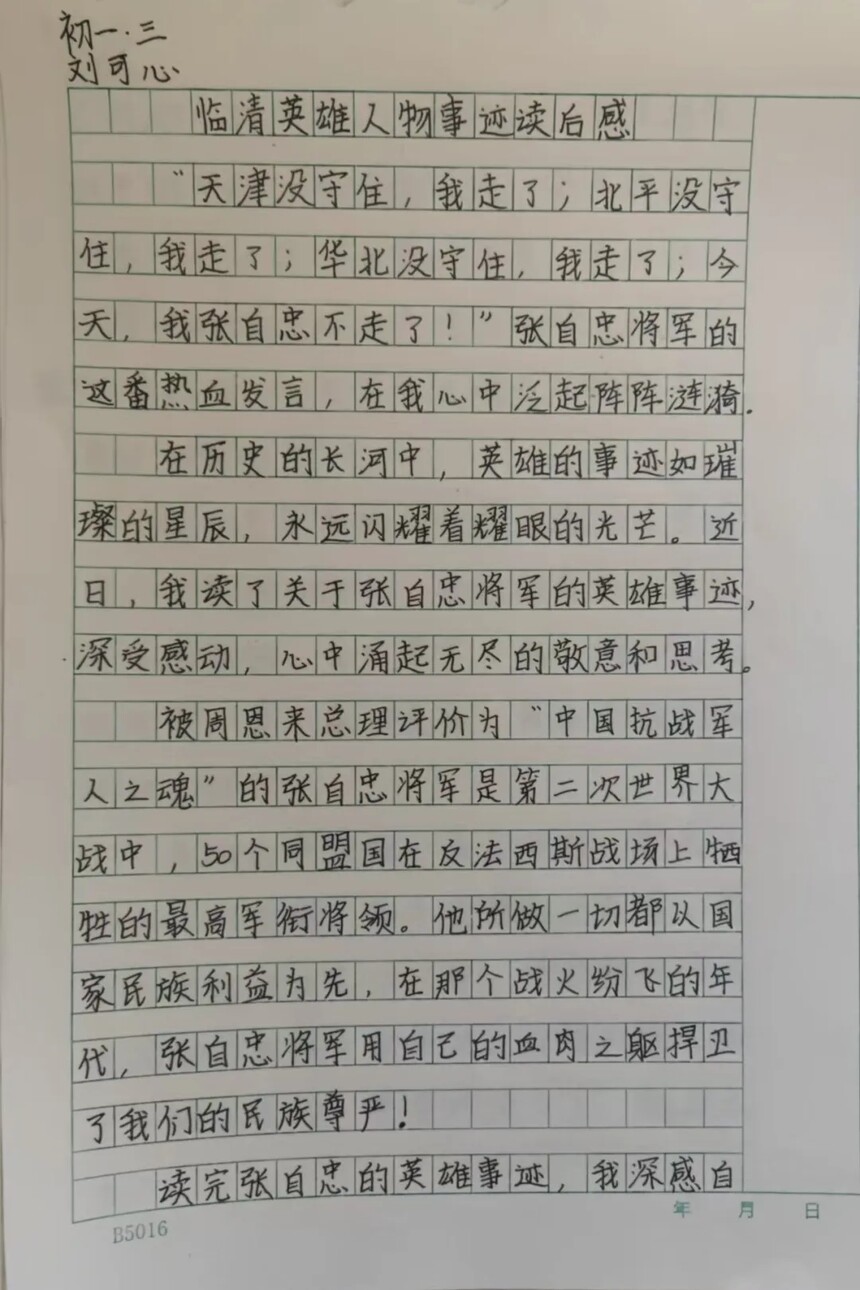 初一·三
刘可心
临清英雄人物事迹读后感
“天津没守住，我走了；北平没守
住，我走了；华北没守住，我走了；今
天，我张自忠不走了！”张自忠将军的
这番热血发言，在我心中泛起阵阵涟漪.
在历史的长河中，英雄的事迹如璀
璨的星辰，永远闪耀着耀眼的光芒。近
日，我读了关于张自忠将军的英雄事迹，
深受感动，心中涌起无尽的敬意和思考。
被周恩来总理评价为“中国抗战军
人之魂”的张自忠将军是第二次世界大
战中，50个同盟国在反法西斯战场上牺
牲的最高军衔将领。他所做一切都以国
家民族利益为先，在那个战火纷飞的年
代，张自忠将军用自己的血肉之躯捍卫
了我们的民族尊严！
读完张自忠的英雄事迹，我深感自
年 月 日
B5016